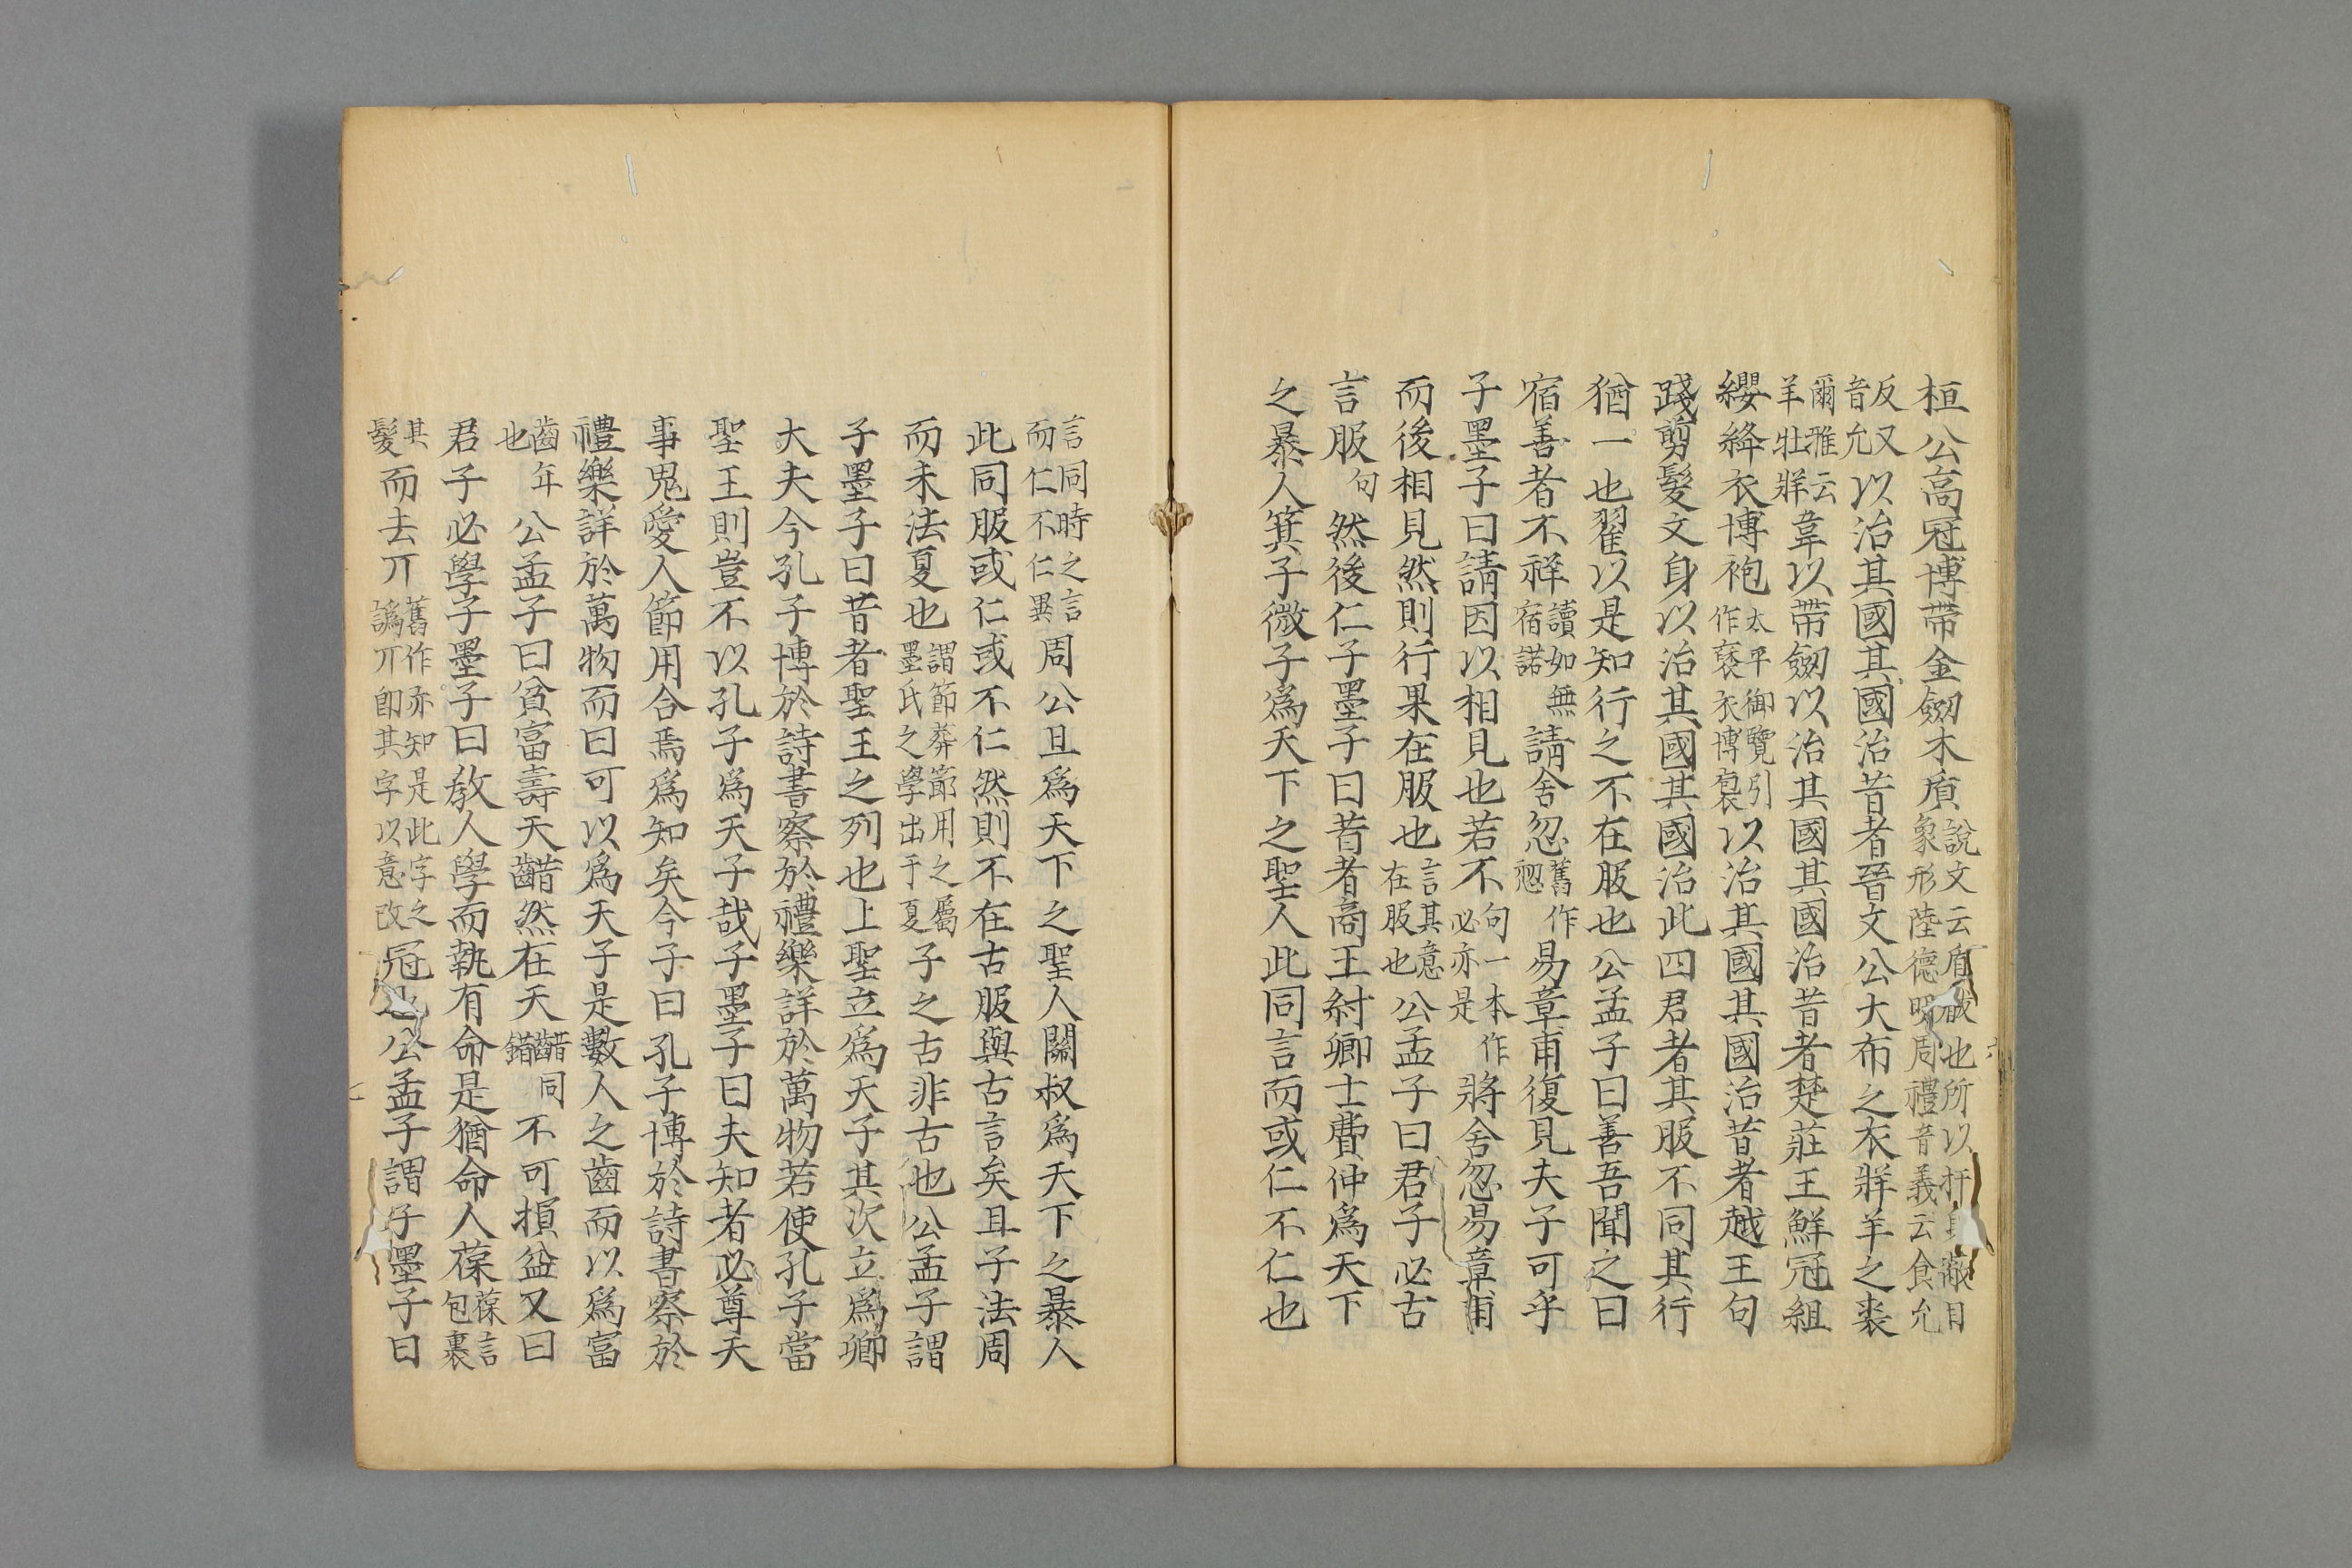 桓公高冠博帶金劒木盾説文云盾瞂也所以扞身蔽目象形陸德明周禮音義云食允
反又音允以治其國其國治昔者晉文公大布之衣牂羊之裘
爾雅云羊牡牂韋以帶劒以治其國其國治昔者楚莊王鮮冠組
纓絳衣博袍太平御覽引作裦衣博裒以治其國其國治昔者越王句
踐剪髮文身以治其國其國治此四君者其服不同其行
猶一也翟以是知行之不在服也公孟子曰善吾聞之曰
宿善者不祥讀如無宿諾請舍忽舊作𢘽易章甫復見夫子可乎
子墨子曰請因以相見也若不句一本作必亦是將舍忽易章甫
而後相見然則行果在服也言其意在服也公孟子曰君子必古
言服句然後仁子墨子曰昔者商王紂卿士費仲爲天下
之暴人箕子微子爲天下之聖人此同言而或仁不仁也
言同時之言而仁不仁異周公旦爲天下之聖人關叔爲天下之暴人
此同服或仁或不仁然則不在古服與古言矣且子法周
而未法夏也謂節葬節用之屬墨氏之學出于夏子之古非古也公孟子謂
子墨子曰昔者聖王之列也上聖立爲天子其次立爲卿
大夫今孔子博於詩書察於禮樂詳於萬物若使孔子當
聖王則豈不以孔子爲天子哉子墨子曰夫知者必尊天
事鬼愛人節用合焉爲知矣今子曰孔子博於詩書察於
禮樂詳於萬物而曰可以爲天子是數人之齒而以爲富
齒年也公孟子曰貧富壽夭齰然在天齰同錯不可損益又曰
君子必學子墨子曰教人學而執有命是猶命人葆葆言包裹
其髮而去丌舊作亦知是此字之譌丌卽其字以意改冠也公孟子謂子墨子曰